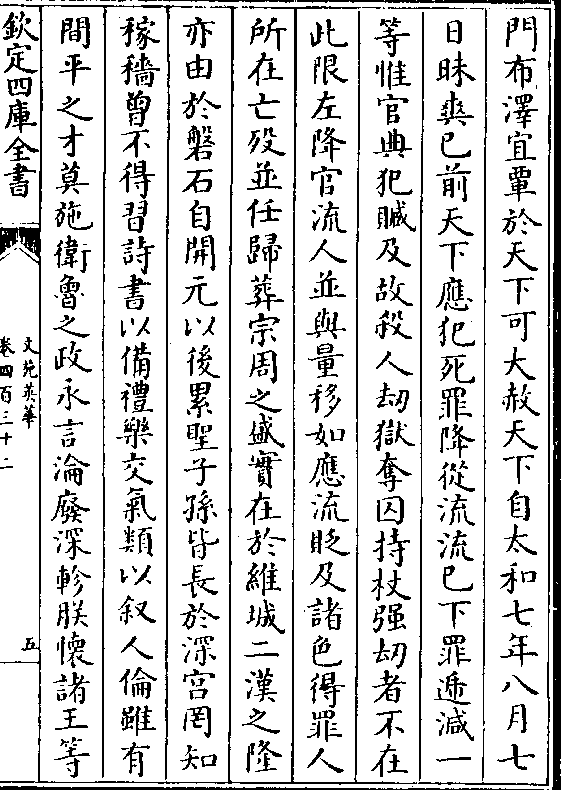 門布澤宜覃於天下可大赦天下自太和七年八月七
日昧爽已前天下應犯死罪降從流流已下罪遞減一
等惟官典犯贓及故殺人刧獄奪囚持杖强刧者不在
此限左降官流人並與量移如應流貶及諸色得罪人
所在亡殁並任歸葬宗周之盛實在於維城二漢之隆
亦由於磐石自開元以後累聖子孫皆長於深宫罔知
稼穡曽不得習詩書以備禮樂交氣類以叙人倫雖有
間平之才莫施衛魯之政永言淪廢深軫朕懷諸王等
欽定四庫全書
文苑英華
卷四百三十二
五